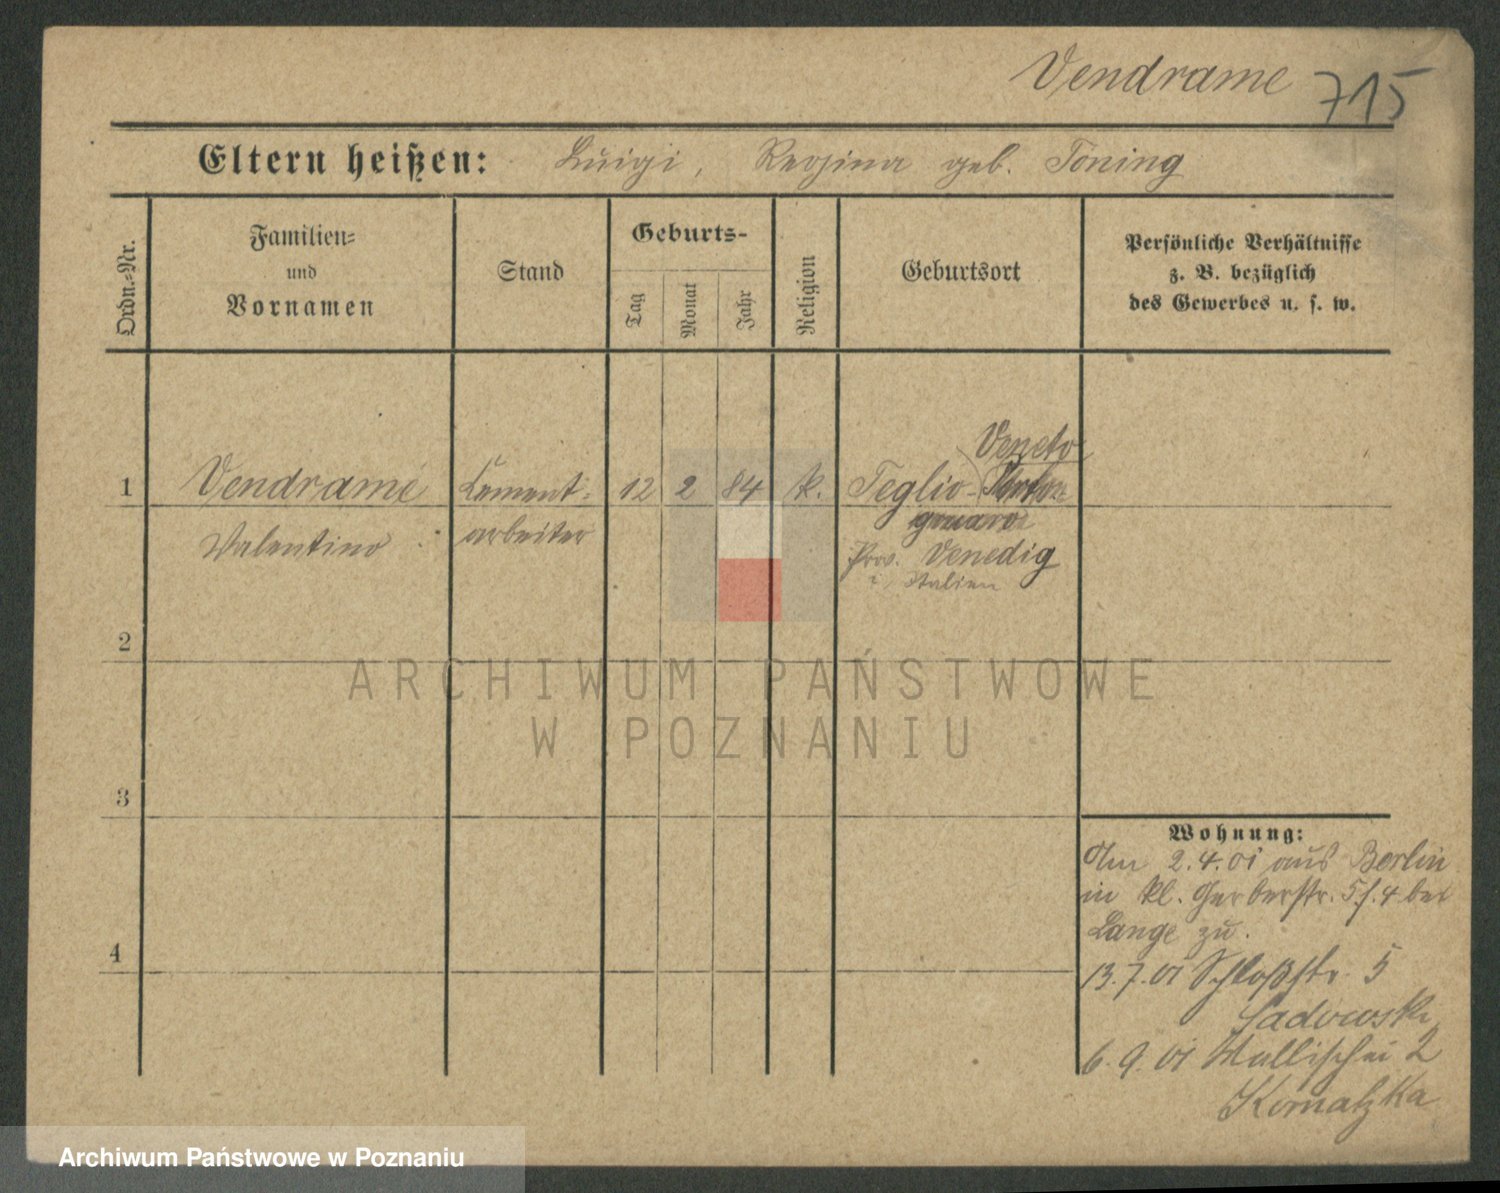 Vendrame 715
Eltern heißen: Luigi, Regina geb. Toning
Ordn.=Nr.
Familien=
und
Vornamen
Stand
Geburts-
Tag
Monat
Jahr
Religion
Geburtsort
Persönliche Verhältnisse
z. B. bezüglich
des Gewerbes u. s. w.
Veneto
1 Vendrame Cement- 12 2 84 k. Teglio- Porto
gruaro
Valentino arbeiter
Prov. Venedig
i. Italien
2
3
4
ARCHIWUM PAŃSTWOWE
W POZNANIU
Wohnung:
Am 2.4.01 aus Berlin
in kl. Gerberstr. 5 f. 4 bei
Lange zu.
13.7.01 Schloßstr. 5
Sadowski
6.9.01 Wallischei 2
Archiwum Państwowe w Poznaniu